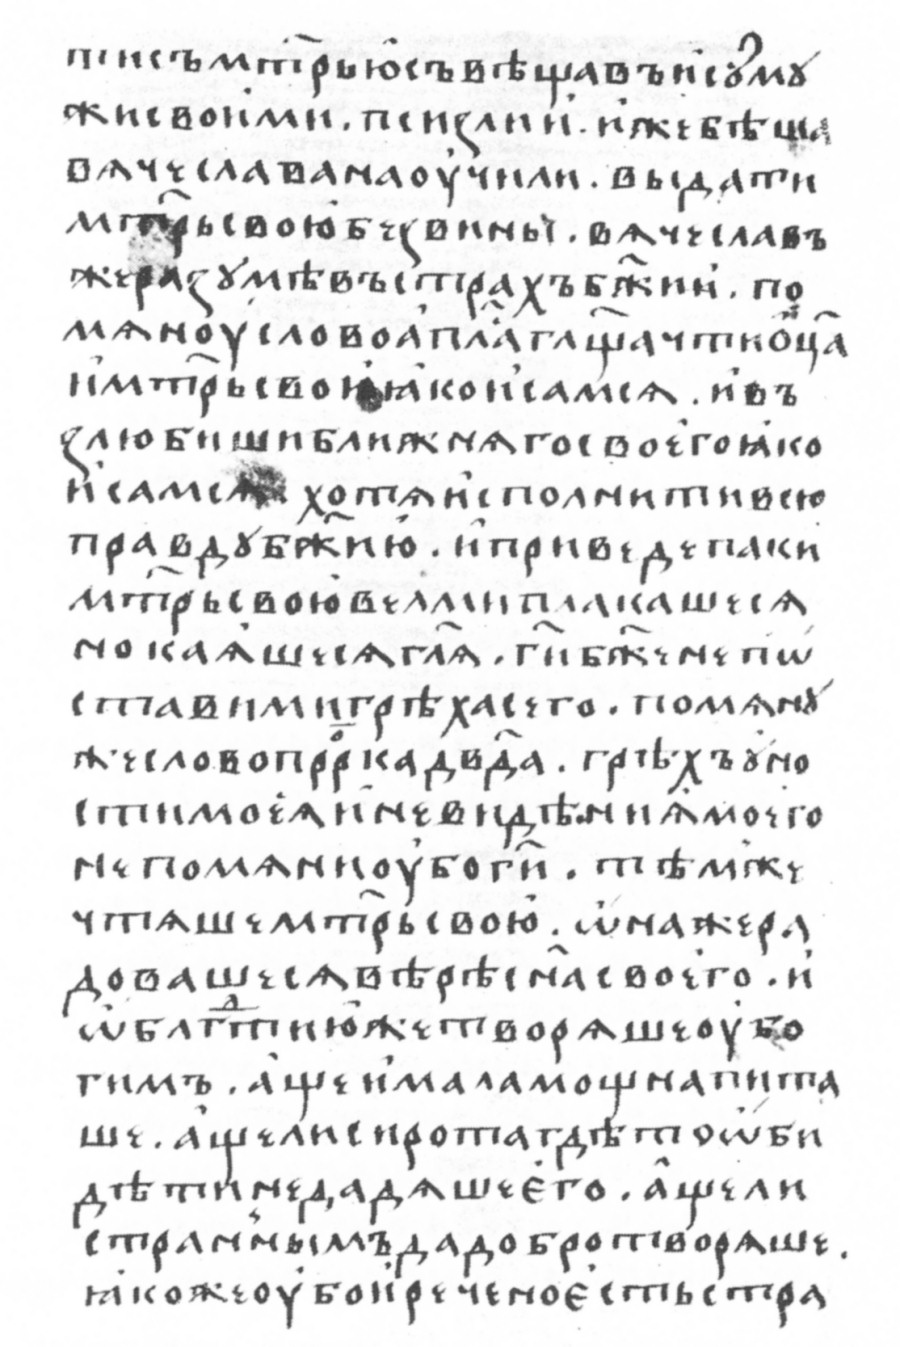 пиисъмт҃рьюсъвѣщавъисꙋмꙋ
жисвоими . псиꙁлии . ижебѣша
вѧчеславанаоучили . выдати
мт҃рьсвоюбеꙁвины . вѧчеславъ
жераꙁꙋмѣвъстрахъбж҃ии . по
мѧноусловоапл҃агл҃щачтиѡц҃а
имт҃рьсвоиꙗкоисамсѧ . ивъ
ꙁлюбишиближнѧгосвоегоꙗко
исамсѧ . хотѧисполнитивсю
правдꙋбж҃ию . иприведепаки
мт҃рьсвоювелмиплакашесѧ
нокаꙗшесѧгл҃ѧ . ги҃бж҃енепѡ
ставимигрѣхасего . помѧнꙋ
жесловопрⷪ҇ркадвд҃а . грѣхъꙋно
стимоеѧиневидѣниꙗмоего
непомѧниоубоги҃ . тѣмже
чтѧшемт҃рьсвою . ѡнажера
довашесѧвѣрѣсн҃асвоего . и
ѡблгⷣтиюжетворѧшеоубо
гимъ . ащеималамощнапита
ше . ащелисиротагдѣтоѡби
дѣтинедадѧшеего . ащели
страннымъдадобротворѧше .
ꙗкожеоубоиреченоестьстра